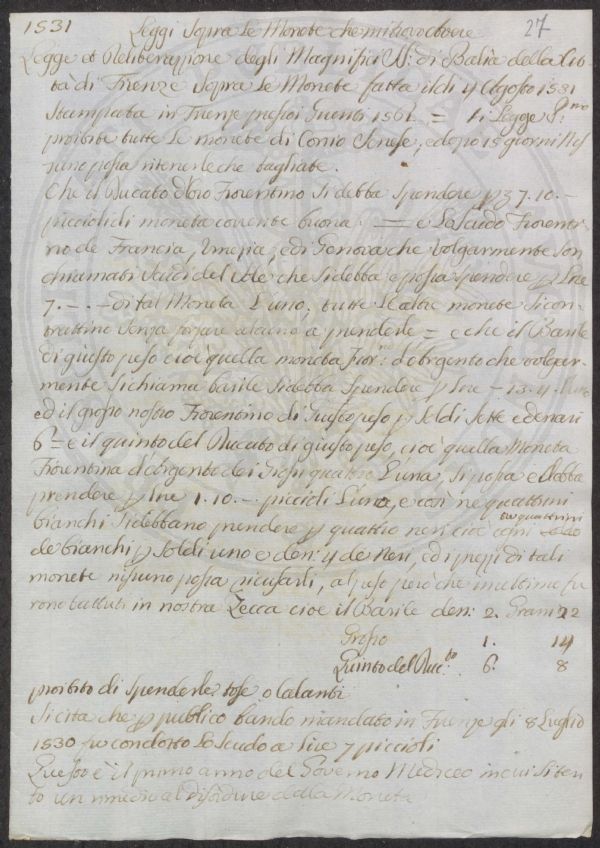 1531 Leggi Sopra le Monete che mi trovo avere 27
Legge et Deliberazzione degli Magnifici SS: di Balìa della Cit
tà di Firenze Sopra le Monete fatta il di 4 Agosto 1531
Stampata in Firenze presso i Giunti 1561. = Legge P:mo
proibite tutte le monete di Conio Senese, e dopo 15 giorni Nes
suno possa ritenerle che tagliate.
Che il Ducato d'Oro Fiorentino Si debba Spendere p 7. 10. –
piccioli di moneta corrente buona = e lo Scudo Fiorenti
no de Francia, Venezia, e di Genova che volgarmente Son
chiamati Scudi del Sole che Si debba e possa spendere p Lire
7. – . – di tal Moneta l'uno, tutte le altre monete Si con
trattino Senza forzare alcuno a prenderle = e che il Barile
di giusto peso cioè quella moneta Fior:na d'Argento che volgar
mente Si chiama barile Si debba Spendere p Lire – 13. 4. l'uno
ed il grosso nostro Fiorentino di Giusto peso p Soldi Sette e denari
6 = e il quinto del Ducato di giusto peso, cioè quella Moneta
Fiorentina d'Argento dei Grossi quattro l'una, Si possa e debba
prendere p Lire 1. 10. – piccioli l'uno, e così ne quattrini
bianchi Si debbano prendere p quattro neri cioè ogni tre quattrini
de bianchi p Soldi uno e den: 4 de Neri, ed i prezzi di tali
monete nissuno possa ricusarli, al peso però che ultimamente fu
rono battuti in nostra Zecca cioè il Barile den: 2. Grani 22
Grosso 1. 14
Quinto del Duc:to 6. 8
proibito di Spenderle tose o calanti
Si cita che p publico bando mandato in Firenze gli 8 Luglio
1530 fu condotto lo Scudo a Lire 7 piccioli
Questo è il primo anno del Governo Mediceo in cui Si ten
tò un rimedio al disordine della Moneta